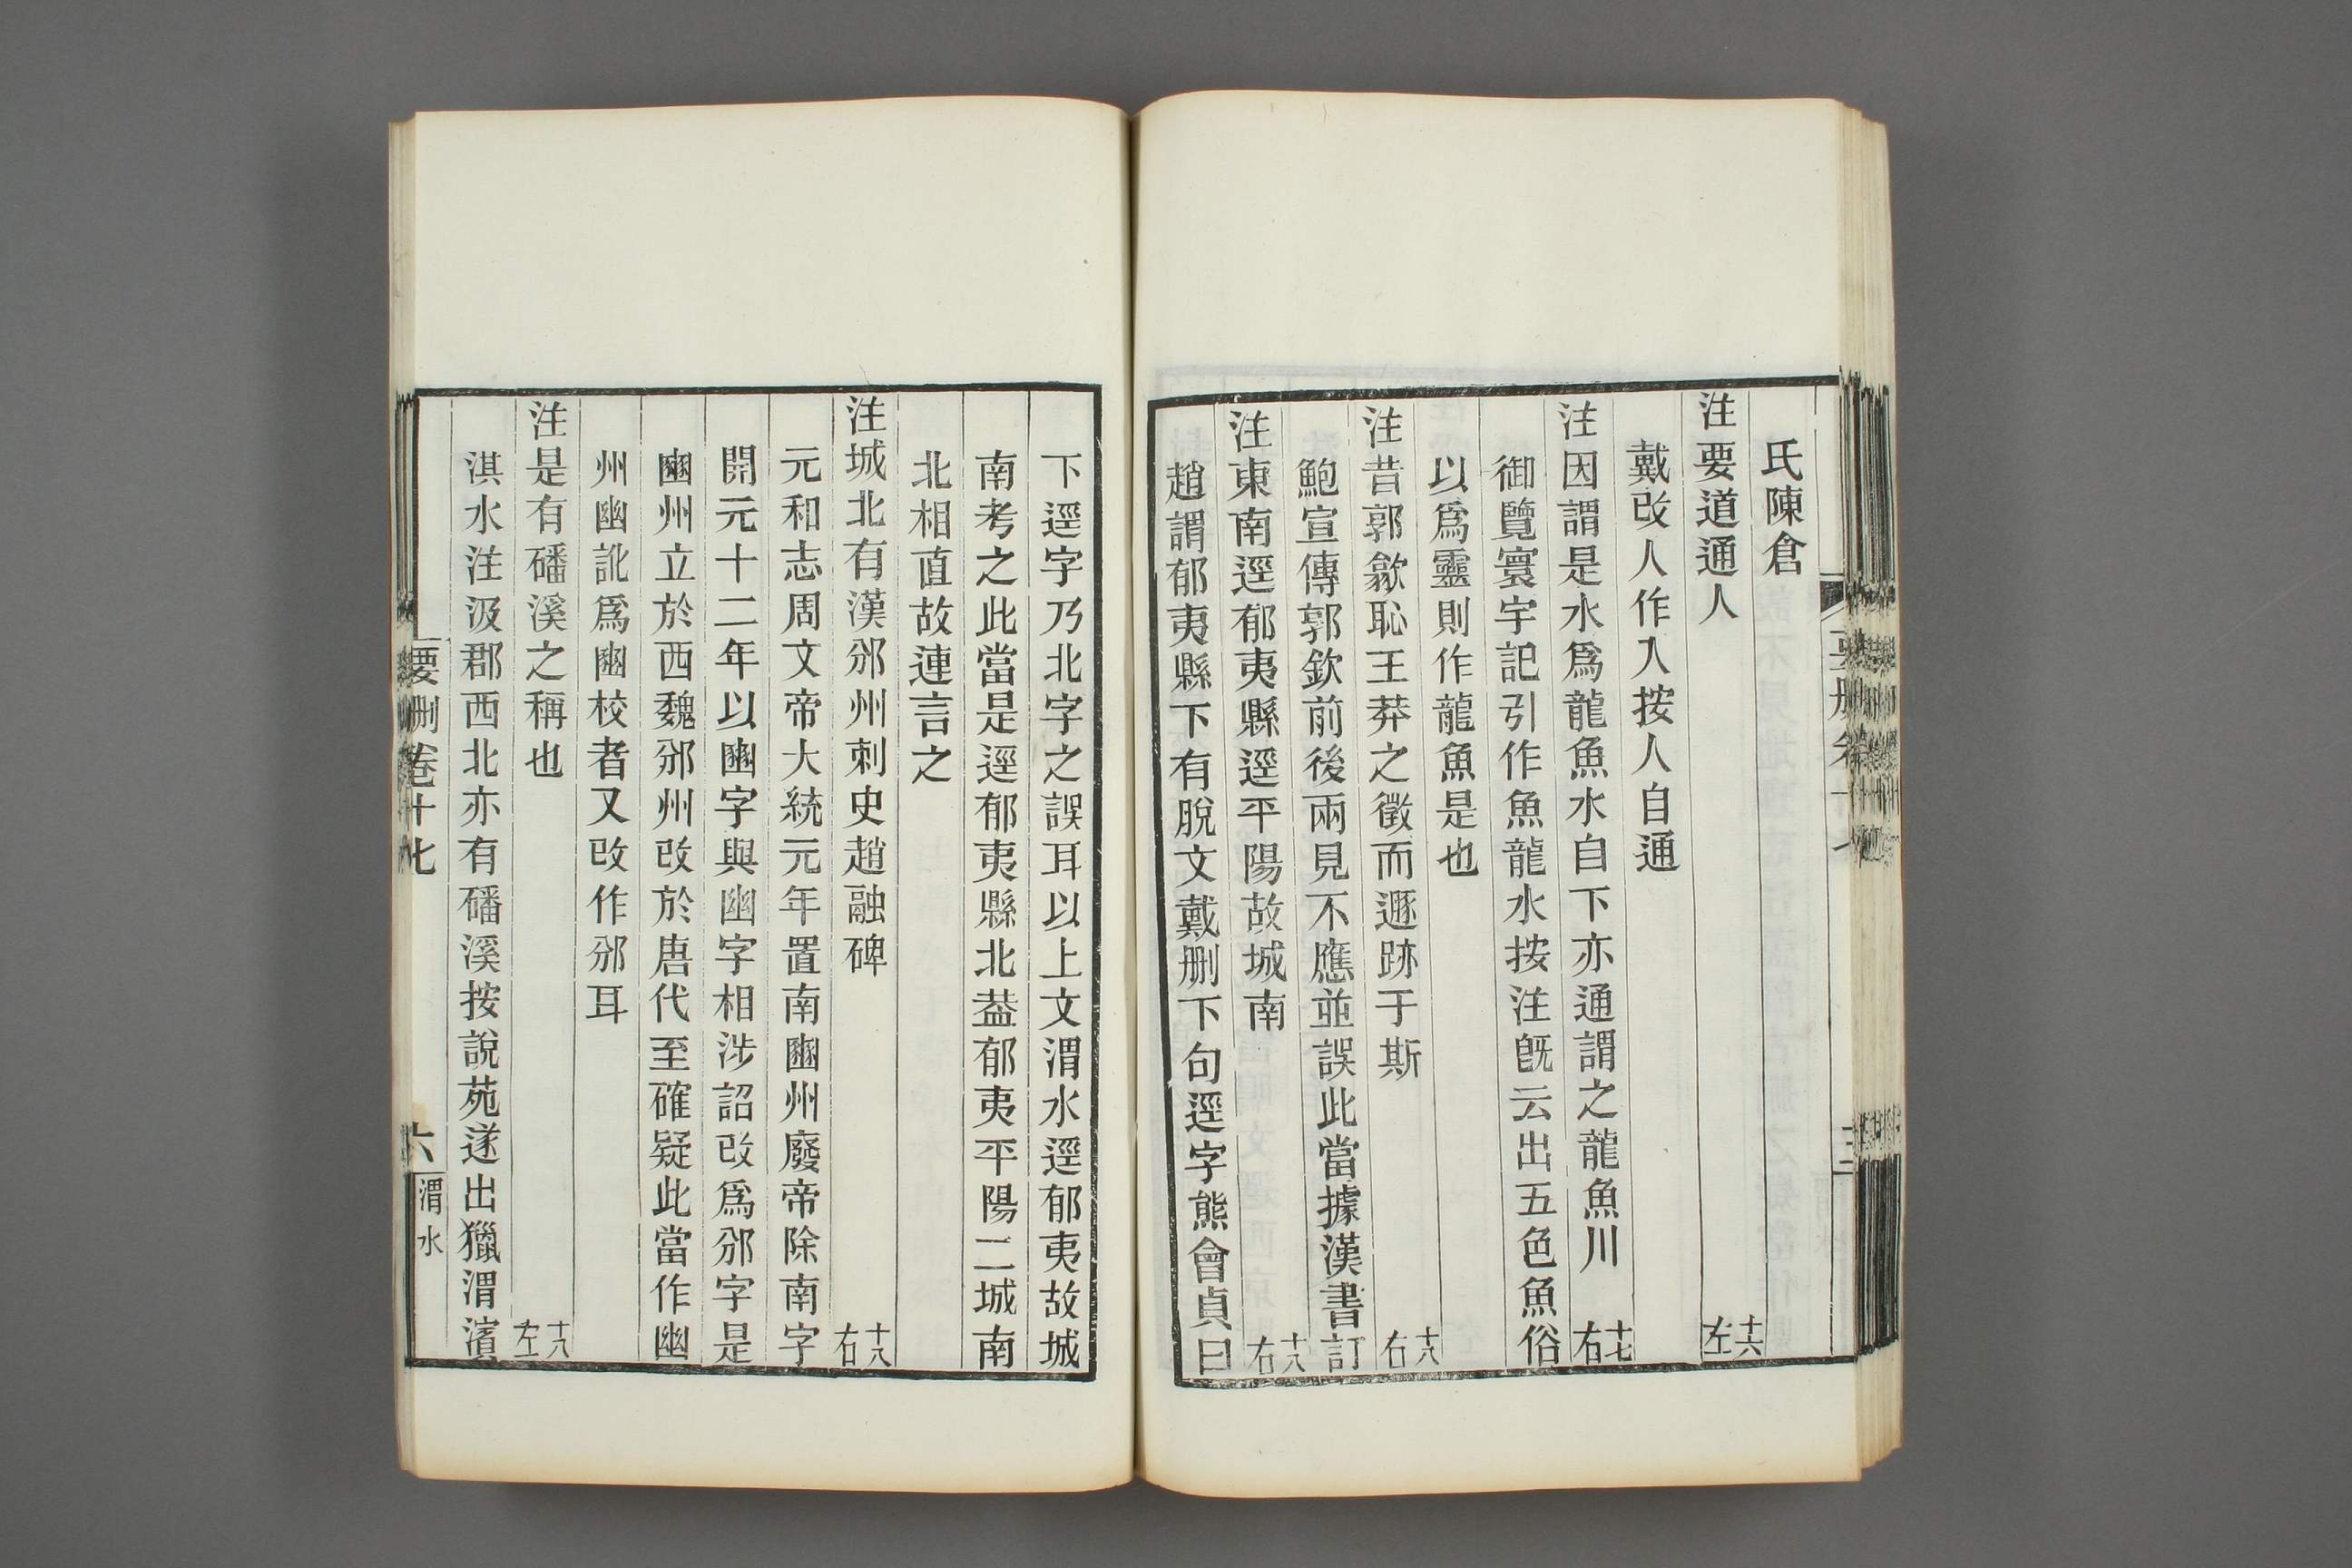 氏陳倉
注要道通人 十六左
戴改人作入按人自通
注因謂是水爲龍魚水自下亦通謂之龍魚川 十七右
御覽寰宇記引作魚龍水按注旣云出五色魚俗
以爲靈則作龍魚是也
注昔郭歙恥王莽之徵而遯跡于斯 十八右
鮑宣傳郭欽前後兩見不應並誤此當據漢書訂
注東南逕郁夷縣逕平陽故城南 十八右
趙謂郁夷縣下有脫文戴删下句逕字熊會貞曰
下逕字乃北字之誤耳以上文渭水逕郁夷故城
南考之此當是逕郁夷縣北葢郁夷平陽二城南
北相直故連言之
注城北有漢邠州刺史趙融碑 十八右
元和志周文帝大統元年置南豳州廢帝除南字
開元十二年以豳字與幽字相涉詔改爲邠字是
豳州立於西魏邠州改於唐代至確疑此當作幽
州幽訛爲豳校者又改作邠耳
注是有磻溪之稱也 十八左
淇水注汲郡西北亦有磻溪按說苑遂出獵渭濱
要删卷十七 六 渭水